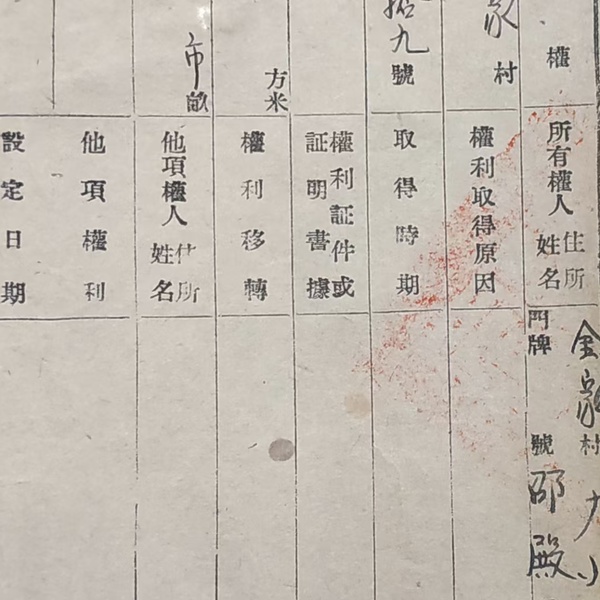 權
所有權人
住所
姓名
門牌
號
邵殿
金家
村
家
村
權利取得原因
拾九
號
取得時期
權利証件或
証明書據
方米
權利移轉
市
畝
他項權人
住所
姓名
他項權利
設定日期